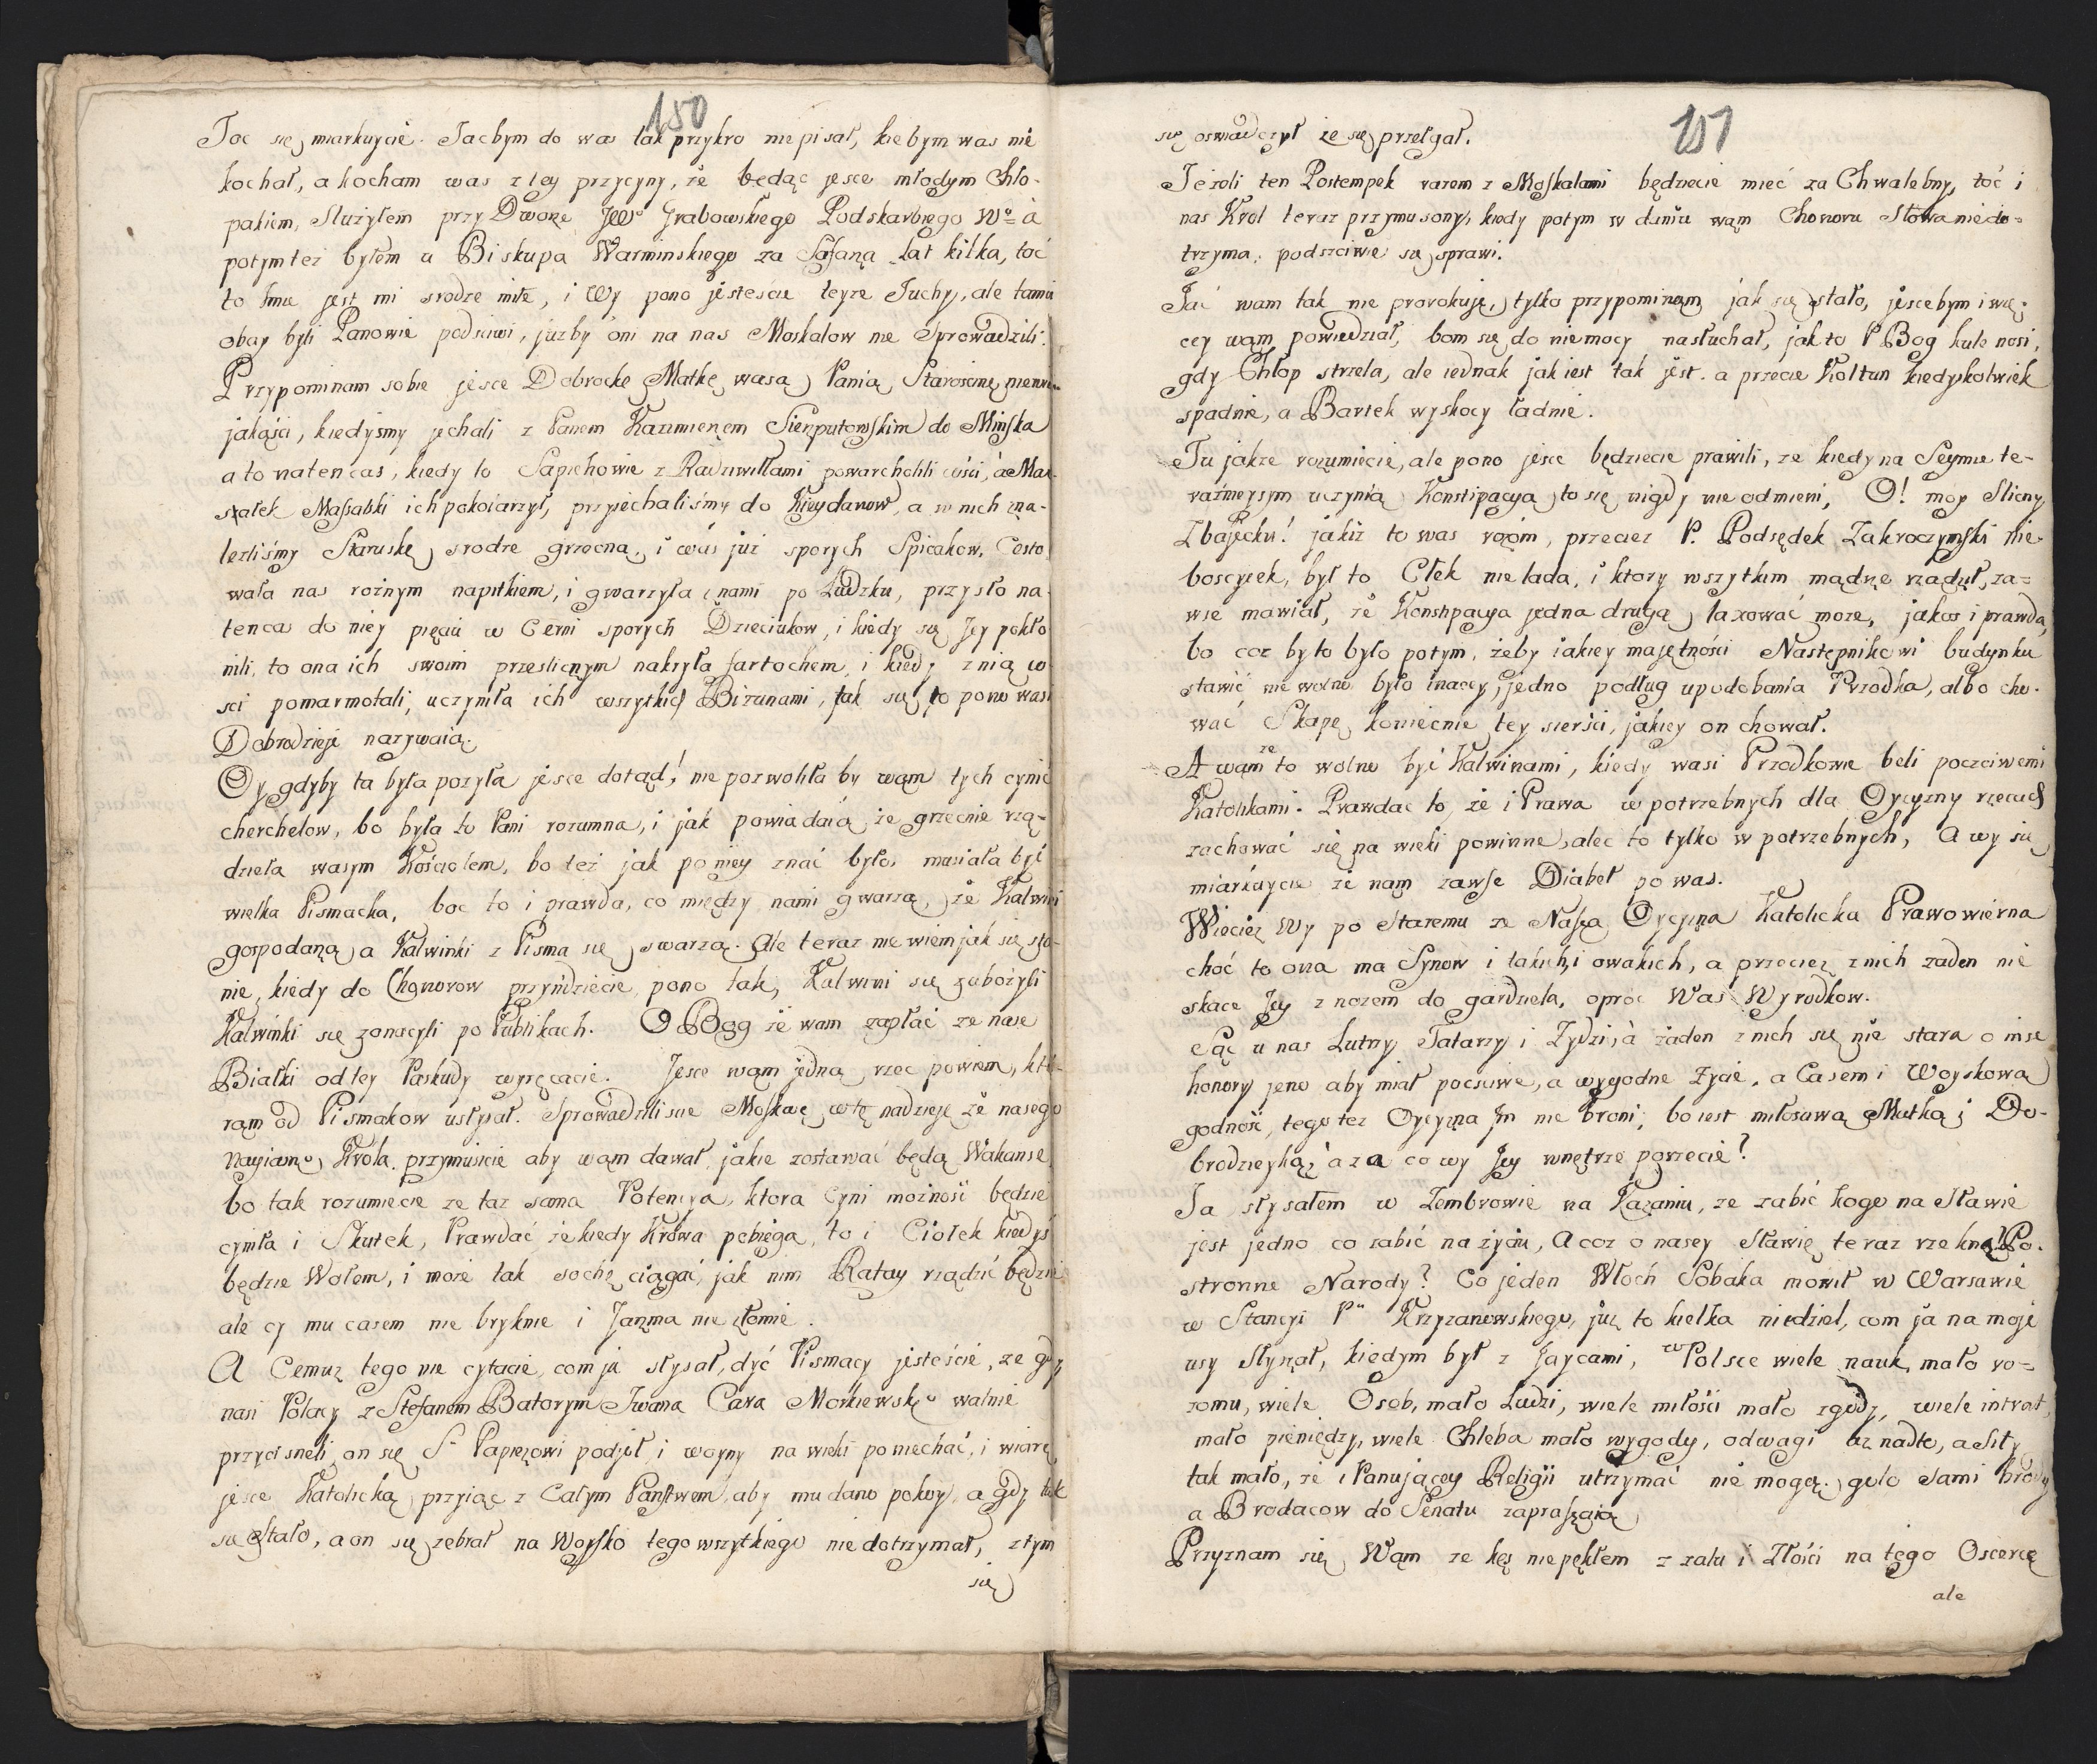 150
Toć się miarkuycie. Jacbym do was tak przykro nie pisał, kiebym was nie
kochał, a kocham was z tey przycyny, że będąc jesce młodym Chło-
pakiem, Służyłem przy Dworze JWo Grabowskiego Podskarbiego Wo= à
potym tez byłem u Biskupa Warminskiego za Safaza Lat kilka, toć
to Imie jest mi srodze miłe, i Wy pono jestescie teyze Juchy, ale tamci
obay byli Panowie podsciwi, juzby oni na nas Moskalow nie Sprowadzili.
Przypominam sobie jesce Dobrocke Matkę wasą Panią Starościnę
jakąści, kiedysmy jechali z Panem Kazimierzem Sierputowskim do Minska
a to natencas, kiedy to Sapiehowie z Radziwiłłami powarcholili cości, à Mar-
szałek Massalski ich pokoiarzył, przyiechaliśmy do Kieydanow, a w nich zna-
lezliśmy Staruskę srodze grzecną, i waś już sporych Spicakow, Cesto-
wała nas rożnym napitkiem, i gwarzyła z nami po Ludzku, przysło na-
tencas do niey pięciu w Cerni sporych Dzieciukow, i kiedy się Jey pokło-
nili, to ona ich swoim przeslicnym nakryła fartochem, i kiedy z nią co
sci pomarmotali, uczyniła ich wszytkich Bizunami, tak się to pono wasi
Dobrodzieje nazywaią.
Oy gdyby ta była pozyła jesce dotąd, nie pozwoliła by wąm tych cynić
cherchelow, bo była to Pani rozumna, i jak powiadaią że grzecnie rzą-
dzieła wasym Kościołem, bo też jak po niey znać było, musiała być
wielka Pismacka, boc to i prawda, co między nami gwarzą, że Kalwini
gospodarzą a Kalwinki z Pisma się swarzą. Ale teraz nie wiem jak się sta-
nie, kiedy do Chonorow przyńdziecie, pono tak, Kalwini się zubożyli
Kalwinki się zonacyli po Publikach. O Bog że wam zapłać ze nase
Białki od tey Paskudy wyręcacie. Jesce wąm jedną rzec powiem, któ-
rąm od Pismakow usłysał. Sprowadziliscie Moskwę w tę nadzieję że nasego
Nayiasno Krola przymusicie aby wąm dawał jakie zostawać będą Wakanse
bo tak rozumiecie ze taz sama Potencya, ktora Cyni możność będzie
cyniła i Skutek, Prawdać że kiedy Krowa pobiega, to i Ciołek kiedyś
będzie Wołem, i może tak sochę ciągać, jak nim Ratay rządzić będzie
ale cy mu casem nie bryknie i Jarzma nie złomie.
A Cemuz tego nie cytacie, com ja słysał, dyć Pismacy jesteście, ze gdy
nasi Polacy z Stefanem Batorym Iwana Cara Moskiewsko walnie
przycisneli, on się S- Papieżowi podjął i woyny na wieki poniechać, i wiarę
jesce Katolicką przyiąc z Całym Państwem, aby mu dano pokoy, a gdy tak
się stało, a on się zebrał na Woysko tego wszytkiego nie dotrzymał, z tym
się
151
się oswiadczył że się przełgał.
Jeżeli ten Postempek razem z Moskalami będziecie mieć za Chwalebny, toć i
nas Krol teraz przymusony, kiedy potym w daniu wąm Chonoru Słowa niedo-
trzyma, podsciwie się sprawi.
Jać wam tak nie prorokuję, tylko przypominąm jak się stało, jescebym i wię-
cey wąm powiedział, bom się do niemocy nasłuchał, jak to P Bog kule nosi,
gdy Chłop strzela, ale iednak jak iest tak jest. a przecie Kołtun kiedyskolwiek
spadnie, a Bartek wyskocy ładnie.
Tu jakze rozumiecie, ale pono jesce będziecie prawili, ze kiedy na Seymie te-
raźnieysym uczynią Konstipacya to się nigdy nie odmieni, O! moy Slicny
Zbajecku! jakiż to was rozóm, przeciez P. Podsędek Zakroczymski nie-
boscycek, był to Cłek nie lada, i ktory wszytkim mądrze rządził, za-
wse mawiał, że Konstipacya jedna drugą laxować moze, jakos i prawda,
bo coz by to było potym, żeby iakiey majętności Następnikowi budynku
stawić nie wolno było inacey, jedno podług upodobania Przodka, albo cho-
wać Skapę koniecnie tey sierści, jakiey on chował.
A wąm ze to wolno być Kalwinami, kiedy wasi Przodkowie beli poczciwemi
Katolikami. Prawdac to, że i Prawa w potrzebnych dla Oycyzny rzecach
zachować się na wieki powinne, alec to tylko w potrzebnych, A wy się
miarkuycie że nąm zawse Diabeł po was.
Wiecież Wy po Staremu ze Nasza Oycyzna Katolicka Prawowierna
choć to ona ma Synow i takich, i owakich, a przeciez z nich zaden nie
skace Jey z nozem do gardziela, oproc Was Wyrodkow.
Sąć u nas Lutrzy Tatarzy i Zydzi, à żaden z nich się nie stara o inse
honory jeno aby miał pocsciwe, a wygodne Zycie, a Casem i Woyskową
godność, tego tez Oycyzna Im nie broni, bo iest miłosciwą Matką i Do-
brodzieyką, a za co wy Jey wnętrze porzecie?
Ja słysałem w Zembrowie na Kazaniu, ze zabić kogo na Sławie
jest jedno co zabić na życiu, A coz o nasey Sławie teraz rzekną Po-
stronne Narody? Co jeden Włoch Sobaka mowił w Warsawie
w Stancyi P" Krzyzanowskiego, juz to kielka niedziel, com ja na moje
usy Słysał, kiedym był z Jaycami, w Polsce wiele nauk, mało ro-
zomu, wiele Osob, mało Ludzi, wiele miłości mało zgody, wiele intrat,
mało pieniędzy, wiele Chleba mało wygody, odwagi aż nadto, a Siły
tak mało, że i Panującey Religii utrzymać nie mogą. golo sami brody
a Brodacow do Senatu zapraszaią
Przyznam się Wąm ze kęs nie pękłem z zalu i Złości na tego Oscercę
ale